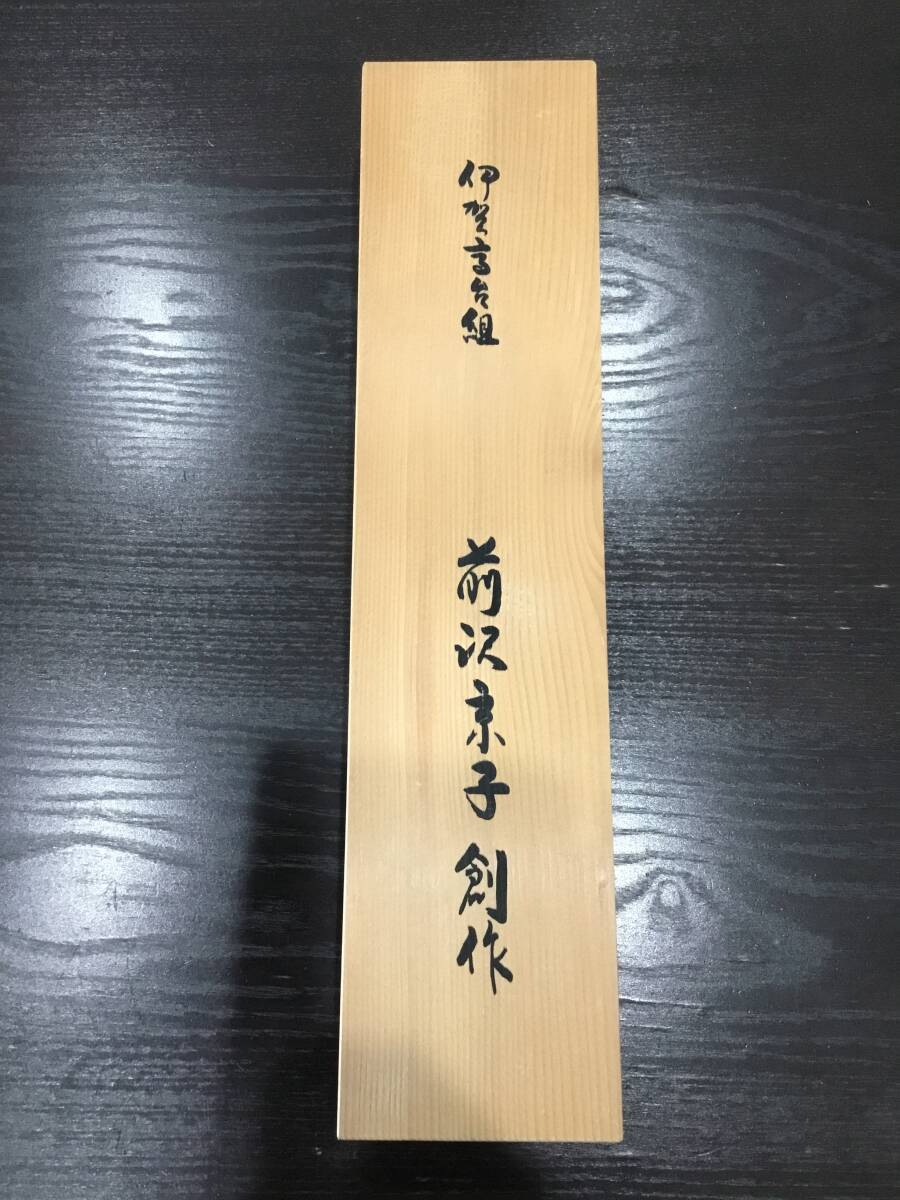 伊賀高台組
前沢京子 創作